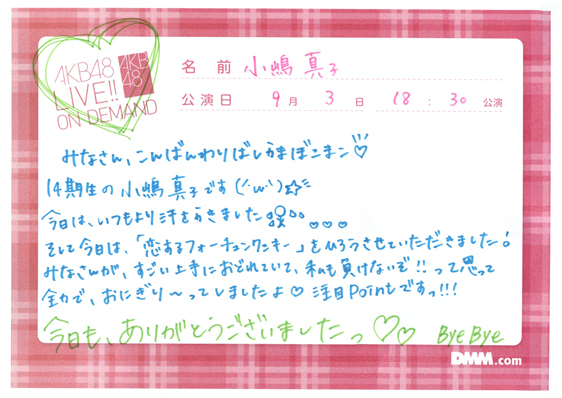 AKB48
LIVE!!
ON DEMAND
AKB
48
名 前 小嶋 真子
公演日 9 月 3 日 18 : 30 公演
みなさん、こんばんわりばしうまぼこまこ♡
14期生の 小嶋 真子です (´・ω・`)☆彡
今日は、いつもより汗をかきました
そして今日は、「恋するフォーチュンクッキー」をひろうさせていただきました!
みなさんが、すごい上手におどれていて、私も負けないぞ!!って思って
全力で、おにぎり〜ってしましたよ♡ 注目Pointですっ!!!
今日も、ありがとうございましたっ ♡♡ Bye Bye
DMM.com